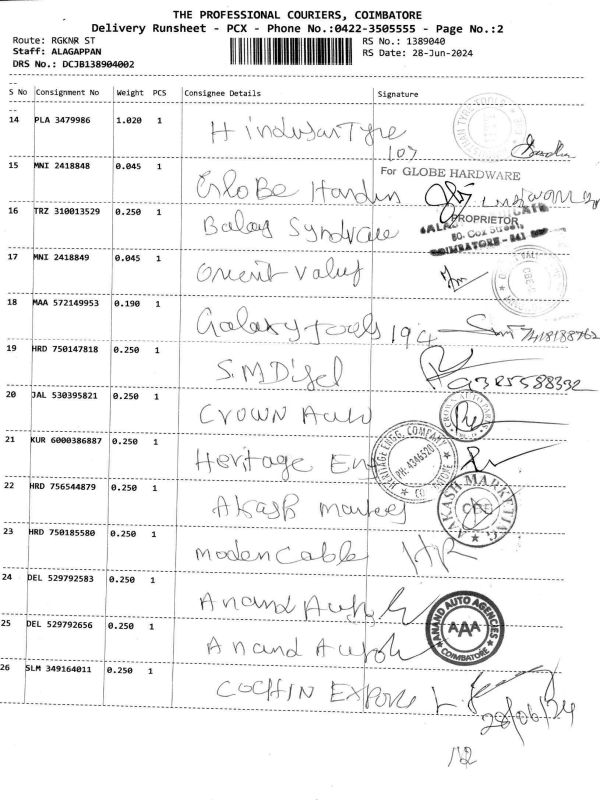 THE PROFESSIONAL COURIERS, COIMBATORE
Delivery Runsheet - PCX - Phone No.:0422-3505555 - Page No.:2
Route: RGKNR ST
RS No.: 1389040
Staff: ALAGAPPAN
RS Date: 28-Jun-2024
DRS No.: DCJB138904002
S No Consignment No Weight PCS Consignee Details Signature
14 PLA 3479986 1.020 1 Hindustan Tyre
107
15 MNI 2418848 0.045 1 GloBe Hardin
For GLOBE HARDWARE
16 TRZ 310013529 0.250 1 Balaji Syndicate
PROPRIETOR
80, Cox Street,
COIMBATORE - 641
17 MNI 2418849 0.045 1 Orient Valuf
18 MAA 572149953 0.190 1 Galaxy Tools 194
7418188762
19 HRD 750147818 0.250 1 S.M Disel
9385588392
20 JAL 530395821 0.250 1 Crown Auto
CROWN AUTO PARTS
21 KUR 6000386887 0.250 1 Heritage Eng
HERITAGE ENGG. COMPANY
PH: 4346520
22 HRD 756544879 0.250 1 Akash Markeg
AAKASH MARKETING
CBE
23 HRD 750185580 0.250 1 Moden Cable
24 DEL 529792583 0.250 1 Anand Auto
ANAND AUTO AGENCIES
AAA
COIMBATORE
25 DEL 529792656 0.250 1 Anand Auto
26 SLM 349164011 0.250 1 COCHIN EXPORS
28/06/24